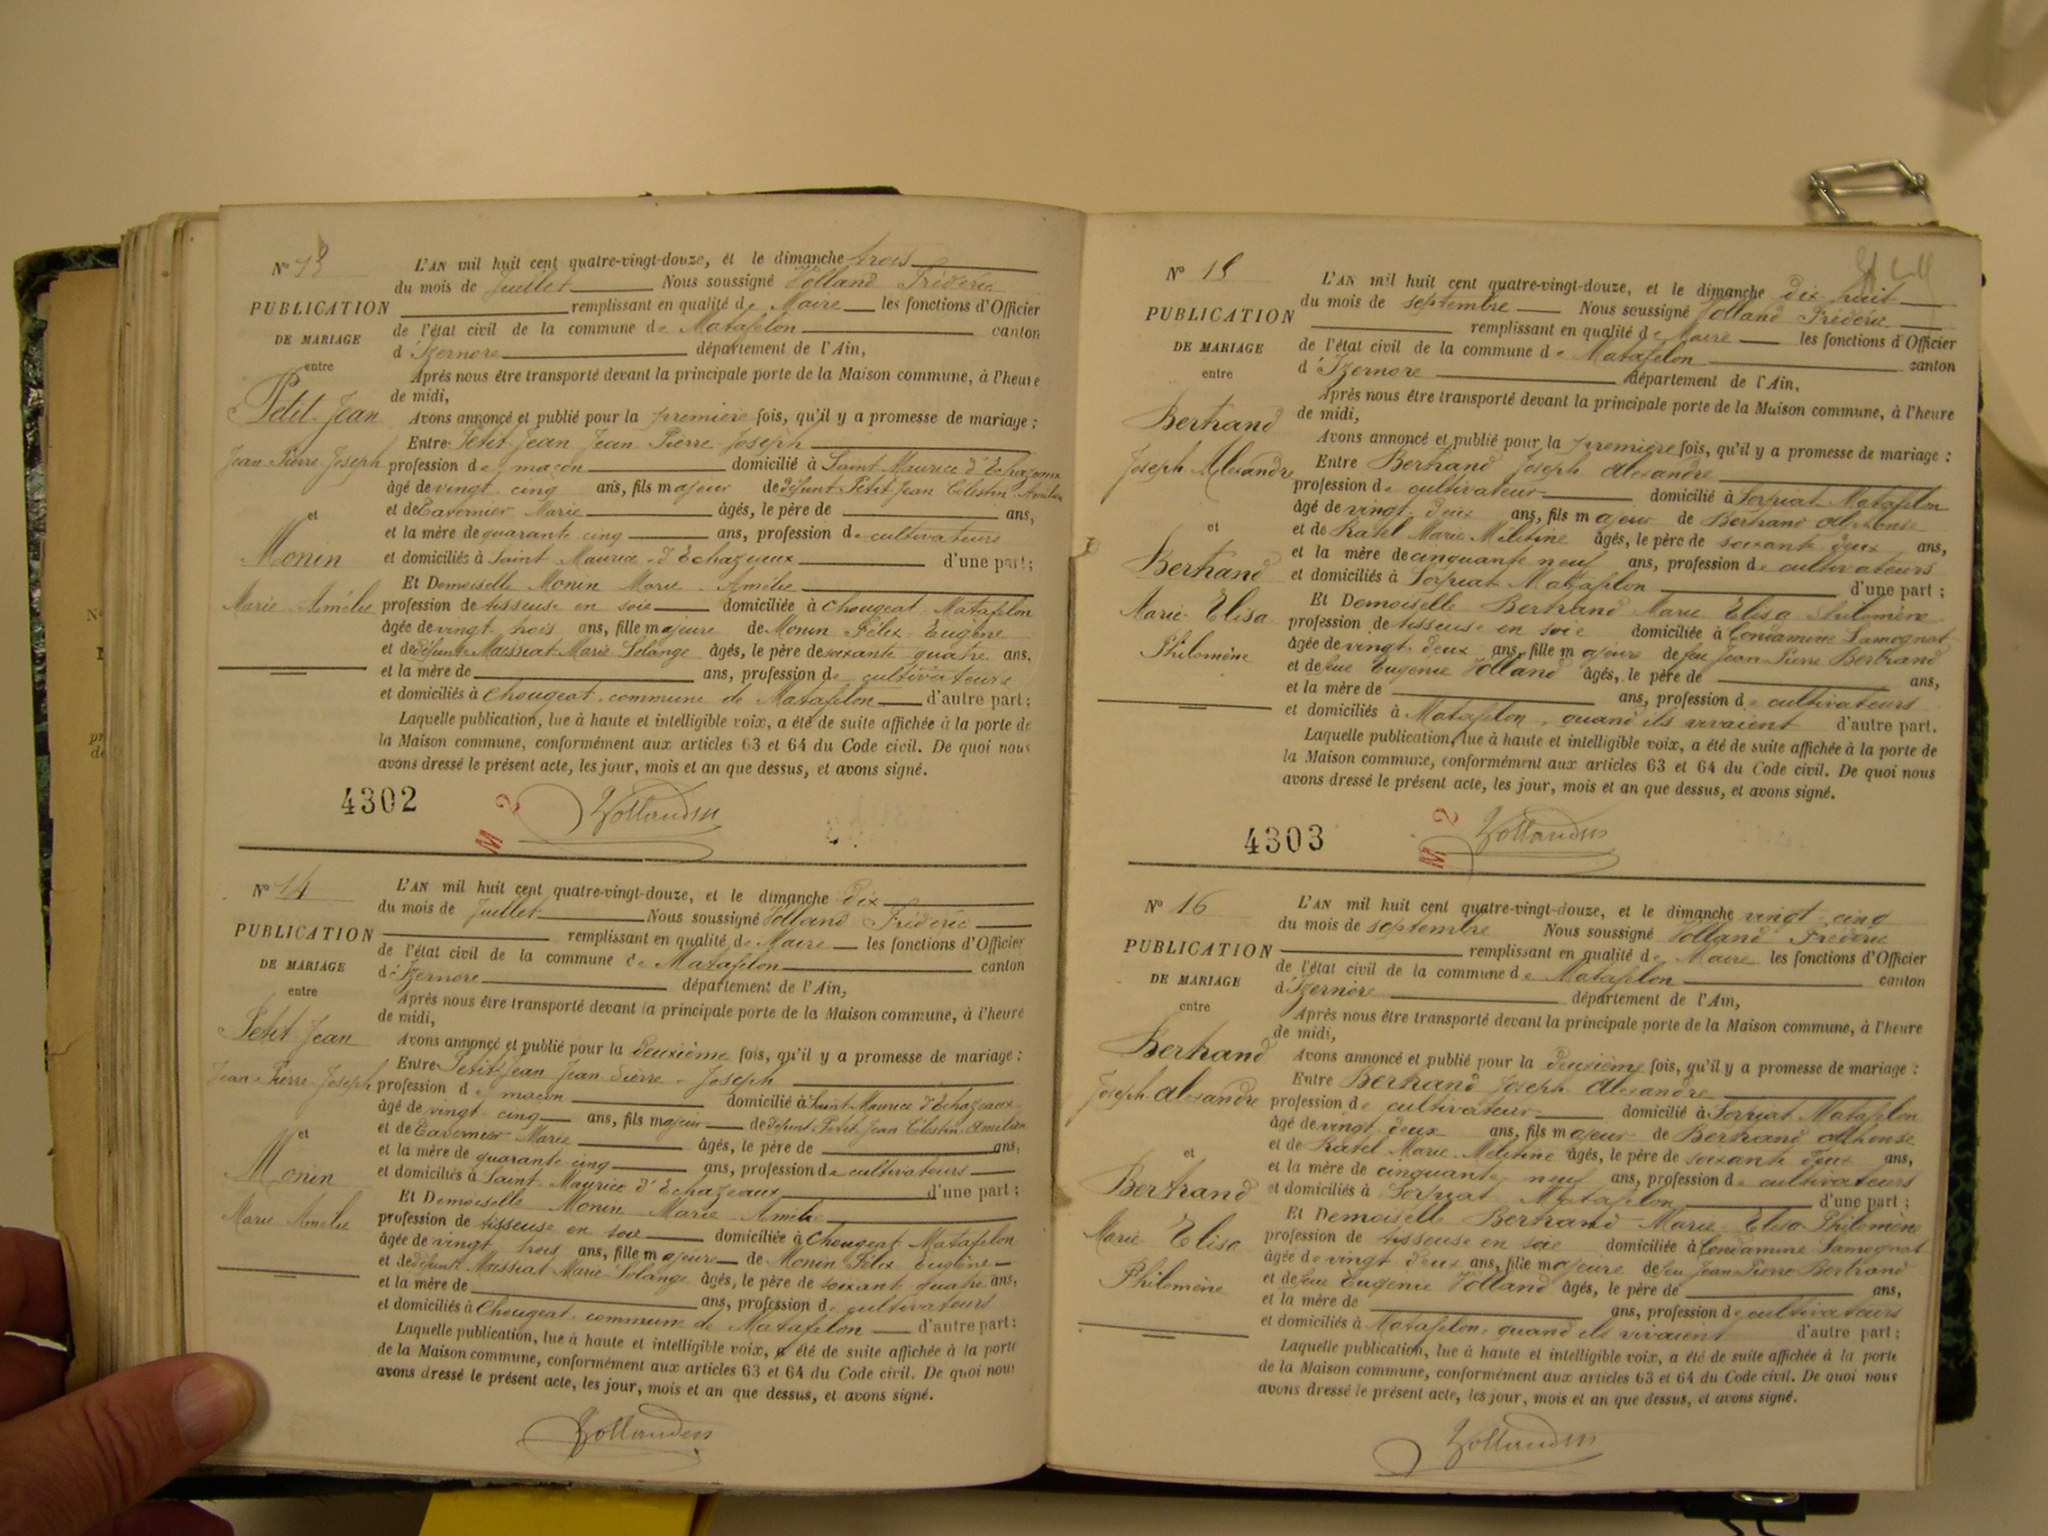 N° 13
PUBLICATION
DE MARIAGE
entre
Petit-Jean
Jean Pierre Joseph
et
Monin
Marie Amélie
L'AN mil huit cent quatre-vingt-douze, et le dimanche trois
du mois de Juillet Nous soussigné Volland Frédéric
remplissant en qualité de Maire les fonctions d'Officier
de l'état civil de la commune de Matafelon canton
d'Izernore département de l'Ain,
Après nous être transporté devant la principale porte de la Maison commune, à l'heure
de midi,
Avons annoncé et publié pour la première fois, qu'il y a promesse de mariage :
Entre Petit-Jean Jean Pierre Joseph
profession de maçon domicilié à Saint Maurice d'Echazeaux
âgé de vingt cinq ans, fils majeur de défunt Petit Jean Célestin Amélien
et de Tavernier Marie âgés, le père de ans,
et la mère de quarante cinq ans, profession de cultivateurs
et domiciliés à Saint Maurice d'Echazeaux d'une part ;
Et Demoiselle Monin Marie Amélie
profession de tisseuse en soie domiciliée à Chougeat Matafelon
âgée de vingt trois ans, fille majeure de Monin Félix Eugène
et de défunte Maissiat Marie Solange âgés, le père de soixante quatre ans,
et la mère de ans, profession de cultivateurs
et domiciliés à Chougeat commune de Matafelon d'autre part ;
Laquelle publication, lue à haute et intelligible voix, a été de suite affichée à la porte de
la Maison commune, conformément aux articles 63 et 64 du Code civil. De quoi nous
avons dressé le présent acte, les jour, mois et an que dessus, et avons signé.
4302
M 2
N° 14
PUBLICATION
DE MARIAGE
entre
Petit-Jean
Jean-Pierre-Joseph
et
Monin
Marie Amélie
L'AN mil huit cent quatre-vingt-douze, et le dimanche dix
du mois de Juillet Nous soussigné Volland Frédéric
remplissant en qualité de Maire les fonctions d'Officier
de l'état civil de la commune de Matafelon canton
d'Izernore département de l'Ain,
Après nous être transporté devant la principale porte de la Maison commune, à l'heure
de midi,
Avons annoncé et publié pour la deuxième fois, qu'il y a promesse de mariage :
Entre Petit-Jean Jean-Pierre-Joseph
profession de maçon domicilié à Saint Maurice d'Echazeaux
âgé de vingt cinq ans, fils majeur de défunt Petit Jean Célestin Amélien
et de Tavernier Marie âgés, le père de ans,
et la mère de quarante cinq ans, profession de cultivateurs
et domiciliés à Saint Maurice d'Echazeaux d'une part ;
Et Demoiselle Monin Marie Amélie
profession de tisseuse en soie domiciliée à Chougeat Matafelon
âgée de vingt trois ans, fille majeure de Monin Félix Eugène
et de défunte Maissiat Marie Solange âgés, le père de soixant quatre ans,
et la mère de ans, profession de cultivateurs
et domiciliés à Chougeat commune de Matafelon d'autre part ;
Laquelle publication, lue à haute et intelligible voix, a été de suite affichée à la porte
de la Maison commune, conformément aux articles 63 et 64 du Code civil. De quoi nous
avons dressé le présent acte, les jour, mois et an que dessus, et avons signé.
N° 15
PUBLICATION
DE MARIAGE
entre
Bertrand
Joseph Alexandre
et
Bertrand
Marie Elisa
Philomène
L'AN mil huit cent quatre-vingt-douze, et le dimanche dix huit
du mois de septembre Nous soussigné Volland Frédéric
remplissant en qualité de Maire les fonctions d'Officier
de l'état civil de la commune de Matafelon canton
d'Izernore département de l'Ain,
Après nous être transporté devant la principale porte de la Maison commune, à l'heure
de midi,
Avons annoncé et publié pour la première fois, qu'il y a promesse de mariage :
Entre Bertrand Joseph Alexandre
profession de cultivateur domicilié à Corpiat Matafelon
âgé de vingt deux ans, fils majeur de Bertrand Alphonse
et de Ratel Marie Mélitine âgés, le père de soixante deux ans,
et la mère de cinquante neuf ans, profession de cultivateurs
et domiciliés à Matafelon d'une part ;
Et Demoiselle Bertrand Marie Elisa Philomène
profession de tisseuse en soie domiciliée à Condamine Samognat
âgée de vingt deux ans, fille majeure de feu Jean Pierre Bertrand
et de feue Eugénie Volland âgés, le père de ans,
et la mère de ans, profession de cultivateurs
et domiciliés à Matafelon, quand ils vivaient d'autre part.
Laquelle publication, lue à haute et intelligible voix, a été de suite affichée à la porte de
la Maison commune, conformément aux articles 63 et 64 du Code civil. De quoi nous
avons dressé le présent acte, les jour, mois et an que dessus, et avons signé.
4303
M 2
N° 16
PUBLICATION
DE MARIAGE
entre
Bertrand
Joseph Alexandre
et
Bertrand
Marie Elisa
Philomène
L'AN mil huit cent quatre-vingt-douze, et le dimanche vingt cinq
du mois de septembre Nous soussigné Volland Frédéric
remplissant en qualité de Maire les fonctions d'Officier
de l'état civil de la commune de Matafelon canton
d'Izernore département de l'Ain,
Après nous être transporté devant la principale porte de la Maison commune, à l'heure
de midi,
Avons annoncé et publié pour la deuxième fois, qu'il y a promesse de mariage :
Entre Bertrand Joseph Alexandre
profession de cultivateur domicilié à Matafelon
âgé de vingt deux ans, fils majeur de Bertrand Alphonse
et de Ratel Marie Mélitine âgés, le père de soixante deux ans,
et la mère de cinquante neuf ans, profession de cultivateurs
et domiciliés à Matafelon d'une part ;
Et Demoiselle Bertrand Marie Elisa Philomène
profession de tisseuse en soie domiciliée à Condamine Samognat
âgée de vingt deux ans, fille majeure de feu Jean Pierre Bertrand
et de feue Eugénie Volland âgés, le père de ans,
et la mère de ans, profession de cultivateurs
et domiciliés à Matafelon, quand ils vivaient d'autre part ;
Laquelle publication, lue à haute et intelligible voix, a été de suite affichée à la porte
de la Maison commune, conformément aux articles 63 et 64 du Code civil. De quoi nous
avons dressé le présent acte, les jour, mois et an que dessus, et avons signé.